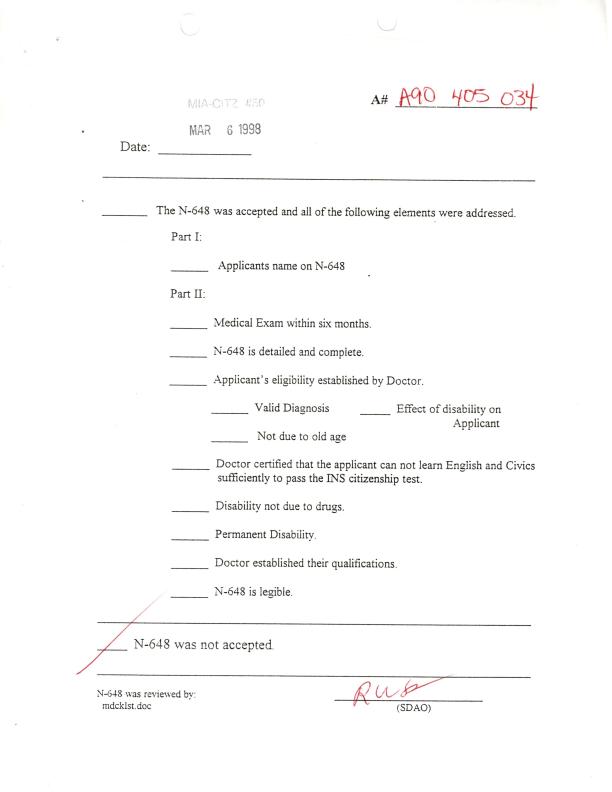 A# A90 405 034
MIA-CITZ
MAR 6 1998
Date: ____________
______ The N-648 was accepted and all of the following elements were addressed.
Part I:
_____ Applicants name on N-648
Part II:
_____ Medical Exam within six months.
_____ N-648 is detailed and complete.
_____ Applicant's eligibility established by Doctor.
_____ Valid Diagnosis _____ Effect of disability on
Applicant
_____ Not due to old age
_____ Doctor certified that the applicant can not learn English and Civics
sufficiently to pass the INS citizenship test.
_____ Disability not due to drugs.
_____ Permanent Disability.
_____ Doctor established their qualifications.
_____ N-648 is legible.
____ N-648 was not accepted.
N-648 was reviewed by:
mdcklst.doc
(SDAO)